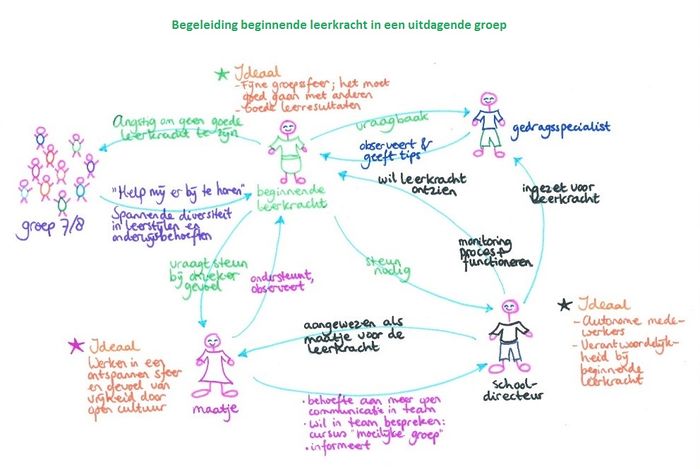 Begeleiding beginnende leerkracht in een uitdagende groep
Ideaal
- Fijne groepssfeer; het moet
goed gaan met anderen
- Goede leerresultaten
Angstig om geen goede
leerkracht te zijn
vraagbaak
gedragsspecialist
observeert &
geeft tips
"Help mij er bij te horen"
beginnende
leerkracht
wil leerkracht
ontzien
ingezet voor
leerkracht
groep 7/8
Spannende diversiteit
in leerstijlen en
onderwijsbehoeften
monitoring
proces +
functioneren
vraagt steun
bij onzeker
gevoel
ondersteunt,
observeert
steun
nodig
Ideaal
- Autonome mede-
werkers
- Verantwoordelijk-
heid bij
beginnende
leerkracht
aangewezen als
maatje voor de
leerkracht
Ideaal
Werken in een
ontspannen sfeer
en gevoel van
vrijheid door
open cultuur
maatje
school-
directeur
• behoefte aan meer open
communicatie in team
• wil in team bespreken:
cursus "moeilijke groep"
• informeert